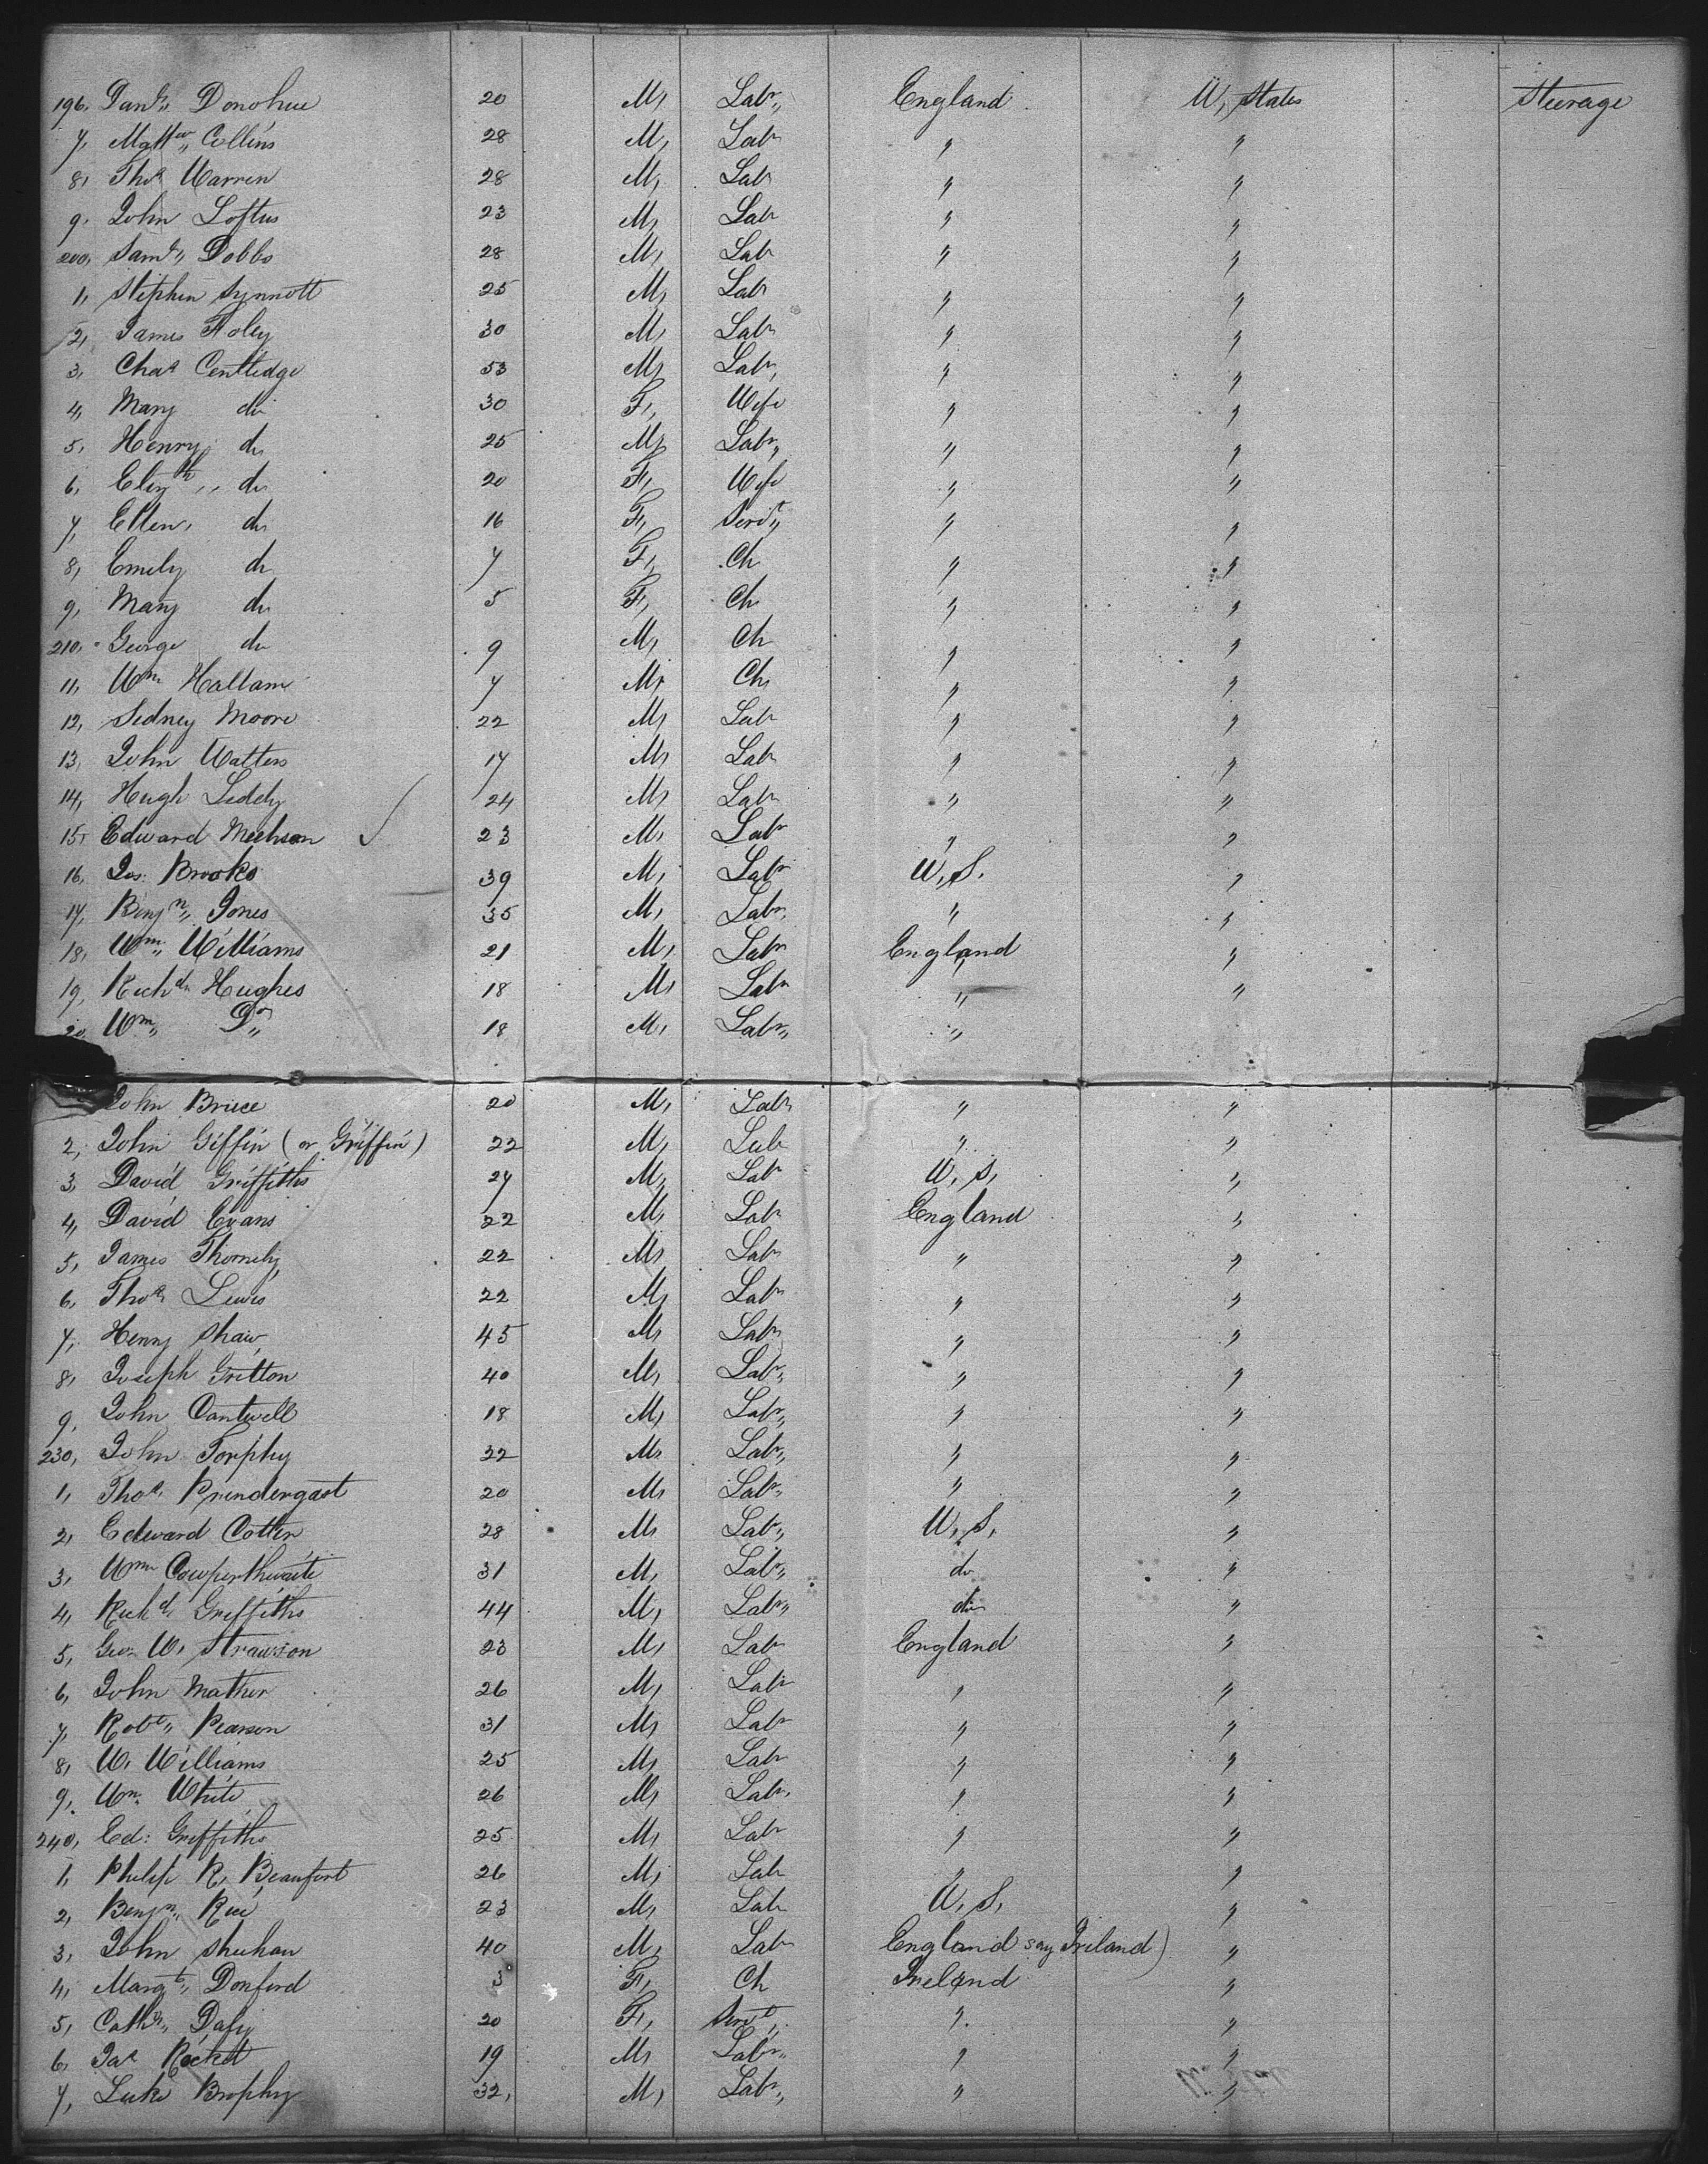 196, Danl,, Donohue 20 M, Labr,, England U, States Steerage
7, Mattw,, Collins 28 M, Labr " "
8, Thos Warren 28 M, Labr " "
9, John Loftus 23 M, Labr " "
200, Saml,, Dobbs 28 M, Labr " "
1, Stephen Synnott 25 M, Labr " "
2, James Foley 30 M, Labr " "
3, Chas Centledge 53 M, Labr, " "
4, Mary do 30 F, Wife " "
5, Henry do 25 M, Labr,, " "
6, Elizth,, do 20 F, Wife " "
7, Ellen, do 16 F, Servt,, " "
8, Emily do 7 F, Ch " "
9, Mary do 5 F, Ch " "
210, George do 9 M, Ch " "
11, Wm Hallam 7 M, Ch " "
12, Sidney Moore 22 M, Labr " "
13, John Watters 17 M, Labr " "
14, Hugh Liddy 24 M, Labr " "
15, Edward Meehan 23 M, Labr " "
16, Jos: Brooks 39 M, Labr U, S, "
17, Benjn,, Jones 35 M, Labr, " "
18, Wm,, Williams 21 M, Labr England "
19, Richd,, Hughes 18 M, Labr " "
20, Wm,, Do,, 18 M, Labr,, "
John Bruce 20 M, Labr " "
2, John Giffin (or Griffin) 22 M, Lab " "
3, David Griffiths 27 M, Labr U, S, "
4, David Evans 22 M, Labr England "
5, James Thornely 22 M, Labr " "
6, Thos Lewis 22 M, Labr " "
7, Henry Shaw 45 M, Labr " "
8, Joseph Gritton 40 M, Labr,, " "
9, John Cantwell 18 M, Labr,, " "
230, John Torphy 32 M, Labr,, " "
1, Thos, Prendergast 20 M, Labr,, " "
2, Edward Cotter 28 M, Labr,, U, S, "
3, Wm Cowperthwaite 31 M, Labr,, do "
4, Richd, Griffiths 44 M, Labr,, do "
5, Geo. W, Strawson 23 M, Labr England "
6, John Mather 26 M, Labr " "
7, Robt,, Pearson 31 M, Labr " "
8, W, Williams 25 M, Labr " "
9, Wm. White 26 M, Labr, " "
240, Ed: Griffiths 25 M, Labr " "
1, Philip R, Beaufort 26 M, Lab " "
2, Benjn,, Rice 23 M, Lab U, S, "
3, John Sheehan 40 M, Labr England say Ireland) "
4, Margt,, Donford 3 F, Ch Ireland "
5, Cathn,, Daly 20 F, Servt, " "
6, Jas Rickett 19 M, Labr,, " "
7, Luke Brophy 32, M, Labr,, " "